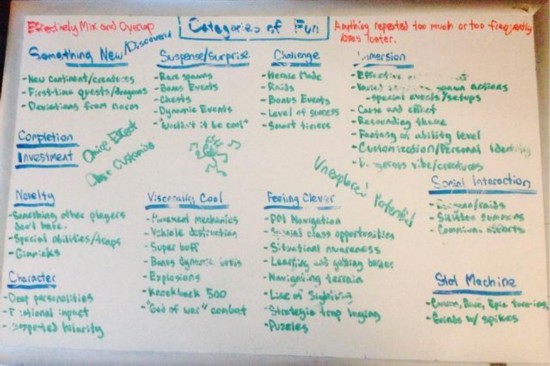 Effectively Mix and Overlap
Categories of Fun
Anything repeated too much or too frequently
loses luster.
Something New/Discovery
- New continent/creatures
- First-time quests/dungeons
- Deviations from norm
Completion
Investment
Cause Effect
Char Customize
Suspense/Surprise
- Rare spawns
- Bonus Events
- Chests
- Dynamic Events
- "Would it be cool"
Challenge
- Heroic Mode
- Raids
- Bonus Events
- Level of success
- Smart timers
Immersion
- Effective
- spawn actions
- special events/setups
- Cause and effect
- Rewarding theme
- Fantasy of ability level
- Customization/Personal Identity
- vibe/creatures
Unexplored Potential
Novelty
- Something other players
don't have.
- Special abilities/temps
- Gimmicks
Character
- Deep personalities
- Emotional impact
- hilarity
Viscerally Cool
- Movement mechanics
- Vehicle destruction
- Super buff
- Bonus dynamic
- Explosions
- Knockback 500
- "God of war" combat
Feeling Clever
- POI Navigation
- Special class opportunities
- Situational awareness
- Learning and getting better
- Navigating terrain
- Line of Sighting
- Strategic trap laying
- Puzzles
Social Interaction
- /raids
- summons
- Communal efforts
Slot Machine
- Epic
- Grinds w/ spikes